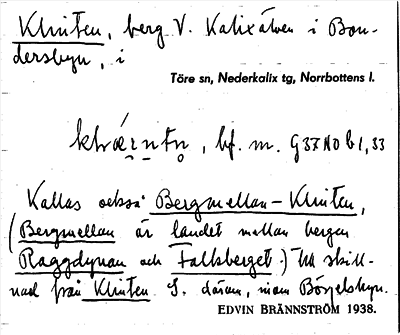 Klinten, berg V. Kalixälven i Bon-
dersbyn, i
Töre sn, Nederkalix tg, Norrbottens l.
bf. m. G37 NO b1, 33
Kallas också Bergmellan-Klinten,
(Bergmellan är landet mellan bergen
Raggdynan och Fallsberget.) Till skill-
nad från Klinten S. därom, inom Börjelsbyn.
EDVIN BRÄNNSTRÖM 1938.